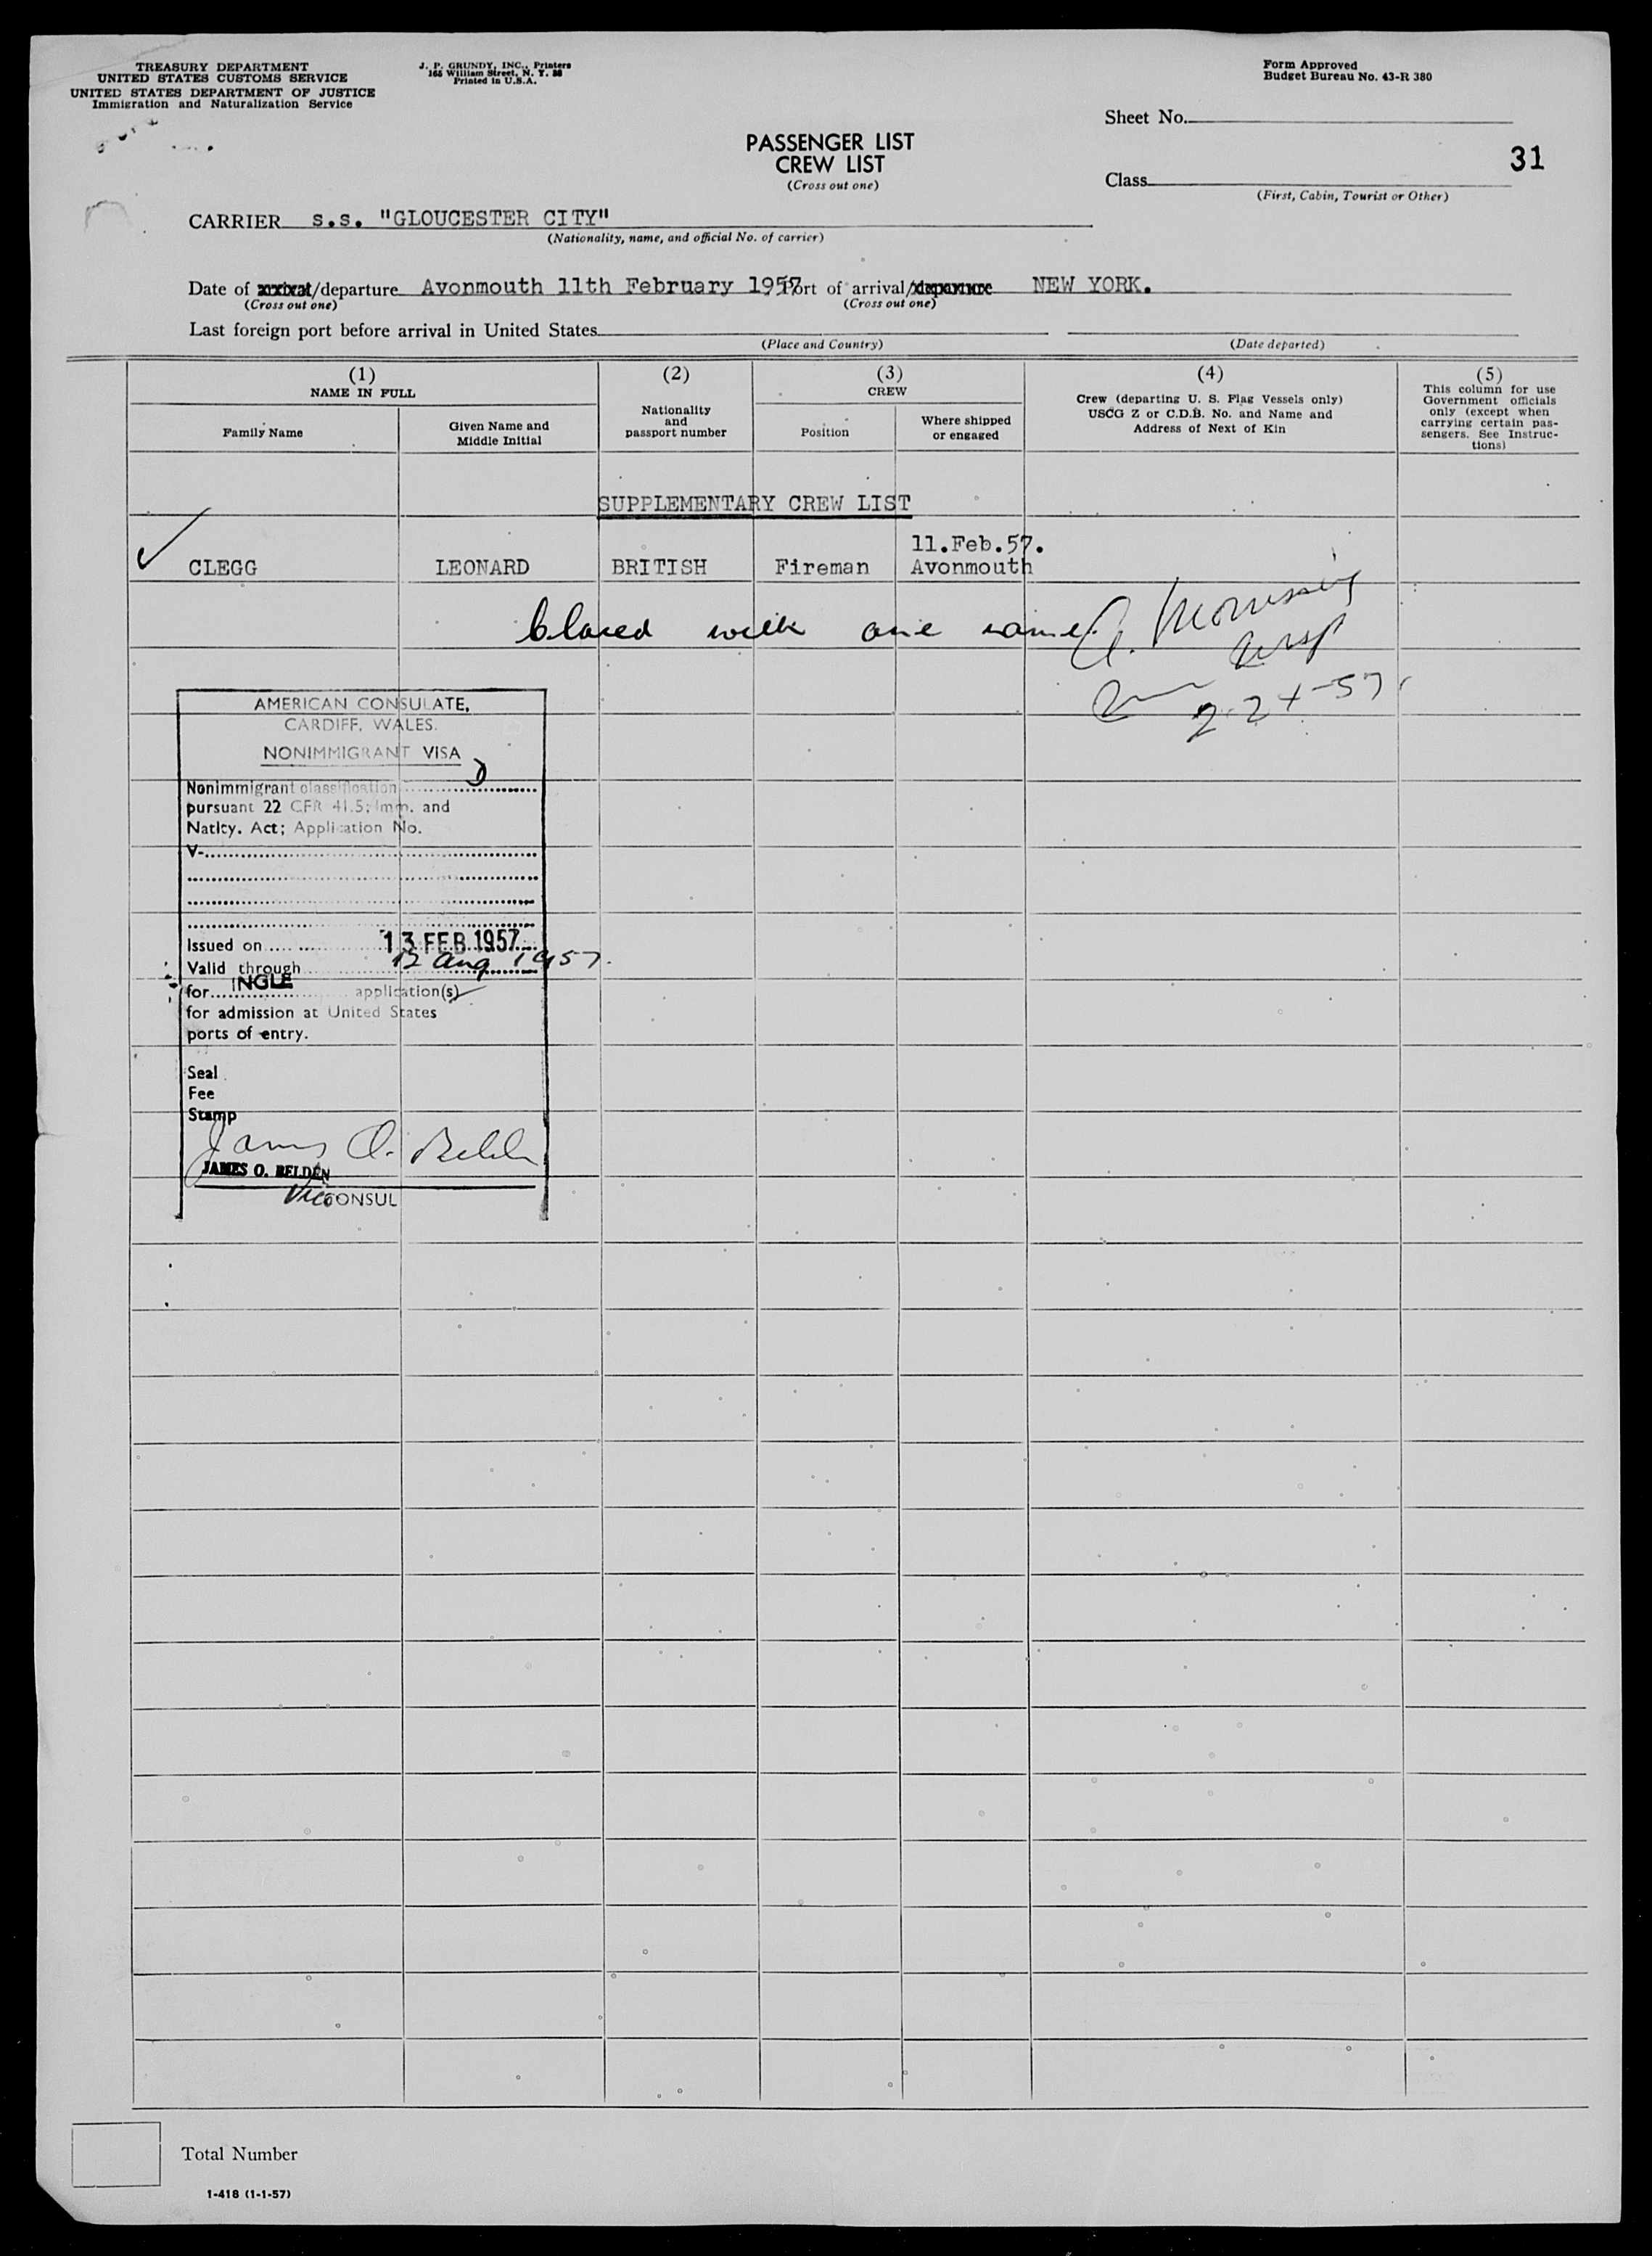 TREASURY DEPARTMENT
UNITED STATES CUSTOMS SERVICE
UNITED STATES DEPARTMENT OF JUSTICE
Immigration and Naturalization Service
J. P. GRUNDY, INC., Printers
165 William Street, N. Y. 38
Printed in U.S.A.
Form Approved
Budget Bureau No. 43-R 380
Sheet No.
PASSENGER LIST
CREW LIST
(Cross out one)
31
Class
(First, Cabin, Tourist or Other)
CARRIER s.s. "GLOUCESTER CITY"
(Nationality, name, and official No. of carrier)
Date of arrival/departure Avonmouth 11th February 1957 Port of arrival/departure NEW YORK.
(Cross out one) (Cross out one)
Last foreign port before arrival in United States
(Place and Country) (Date departed)
(1)
NAME IN FULL
Family Name
Given Name and
Middle Initial
(2)
Nationality
and
passport number
(3)
CREW
Position
Where shipped
or engaged
(4)
Crew (departing U. S. Flag Vessels only)
USCG Z or C.D.B. No. and Name and
Address of Next of Kin
(5)
This column for use
Government officials
only (except when
carrying certain pas-
sengers. See Instruc-
tions)
SUPPLEMENTARY CREW LIST
11.Feb.57.
CLEGG LEONARD BRITISH Fireman Avonmouth
Closed with one name.
2-24-57
AMERICAN CONSULATE,
CARDIFF, WALES.
NONIMMIGRANT VISA
Nonimmigrant classification D
pursuant 22 CFR 41.5; Imm. and
Natlty. Act; Application No.
V-
Issued on 13 FEB 1957
Valid through 12 Aug 1957.
for INGLE application(s)
for admission at United States
ports of entry.
Seal
Fee
Stamp
James O. Belden
JAMES O. BELDEN
Vice CONSUL
Total Number
1-418 (1-1-57)